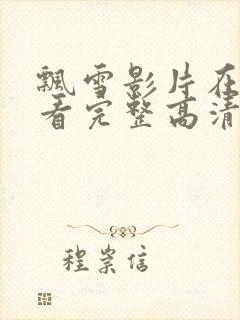 飘雪影片在
看完整高清
程崇信